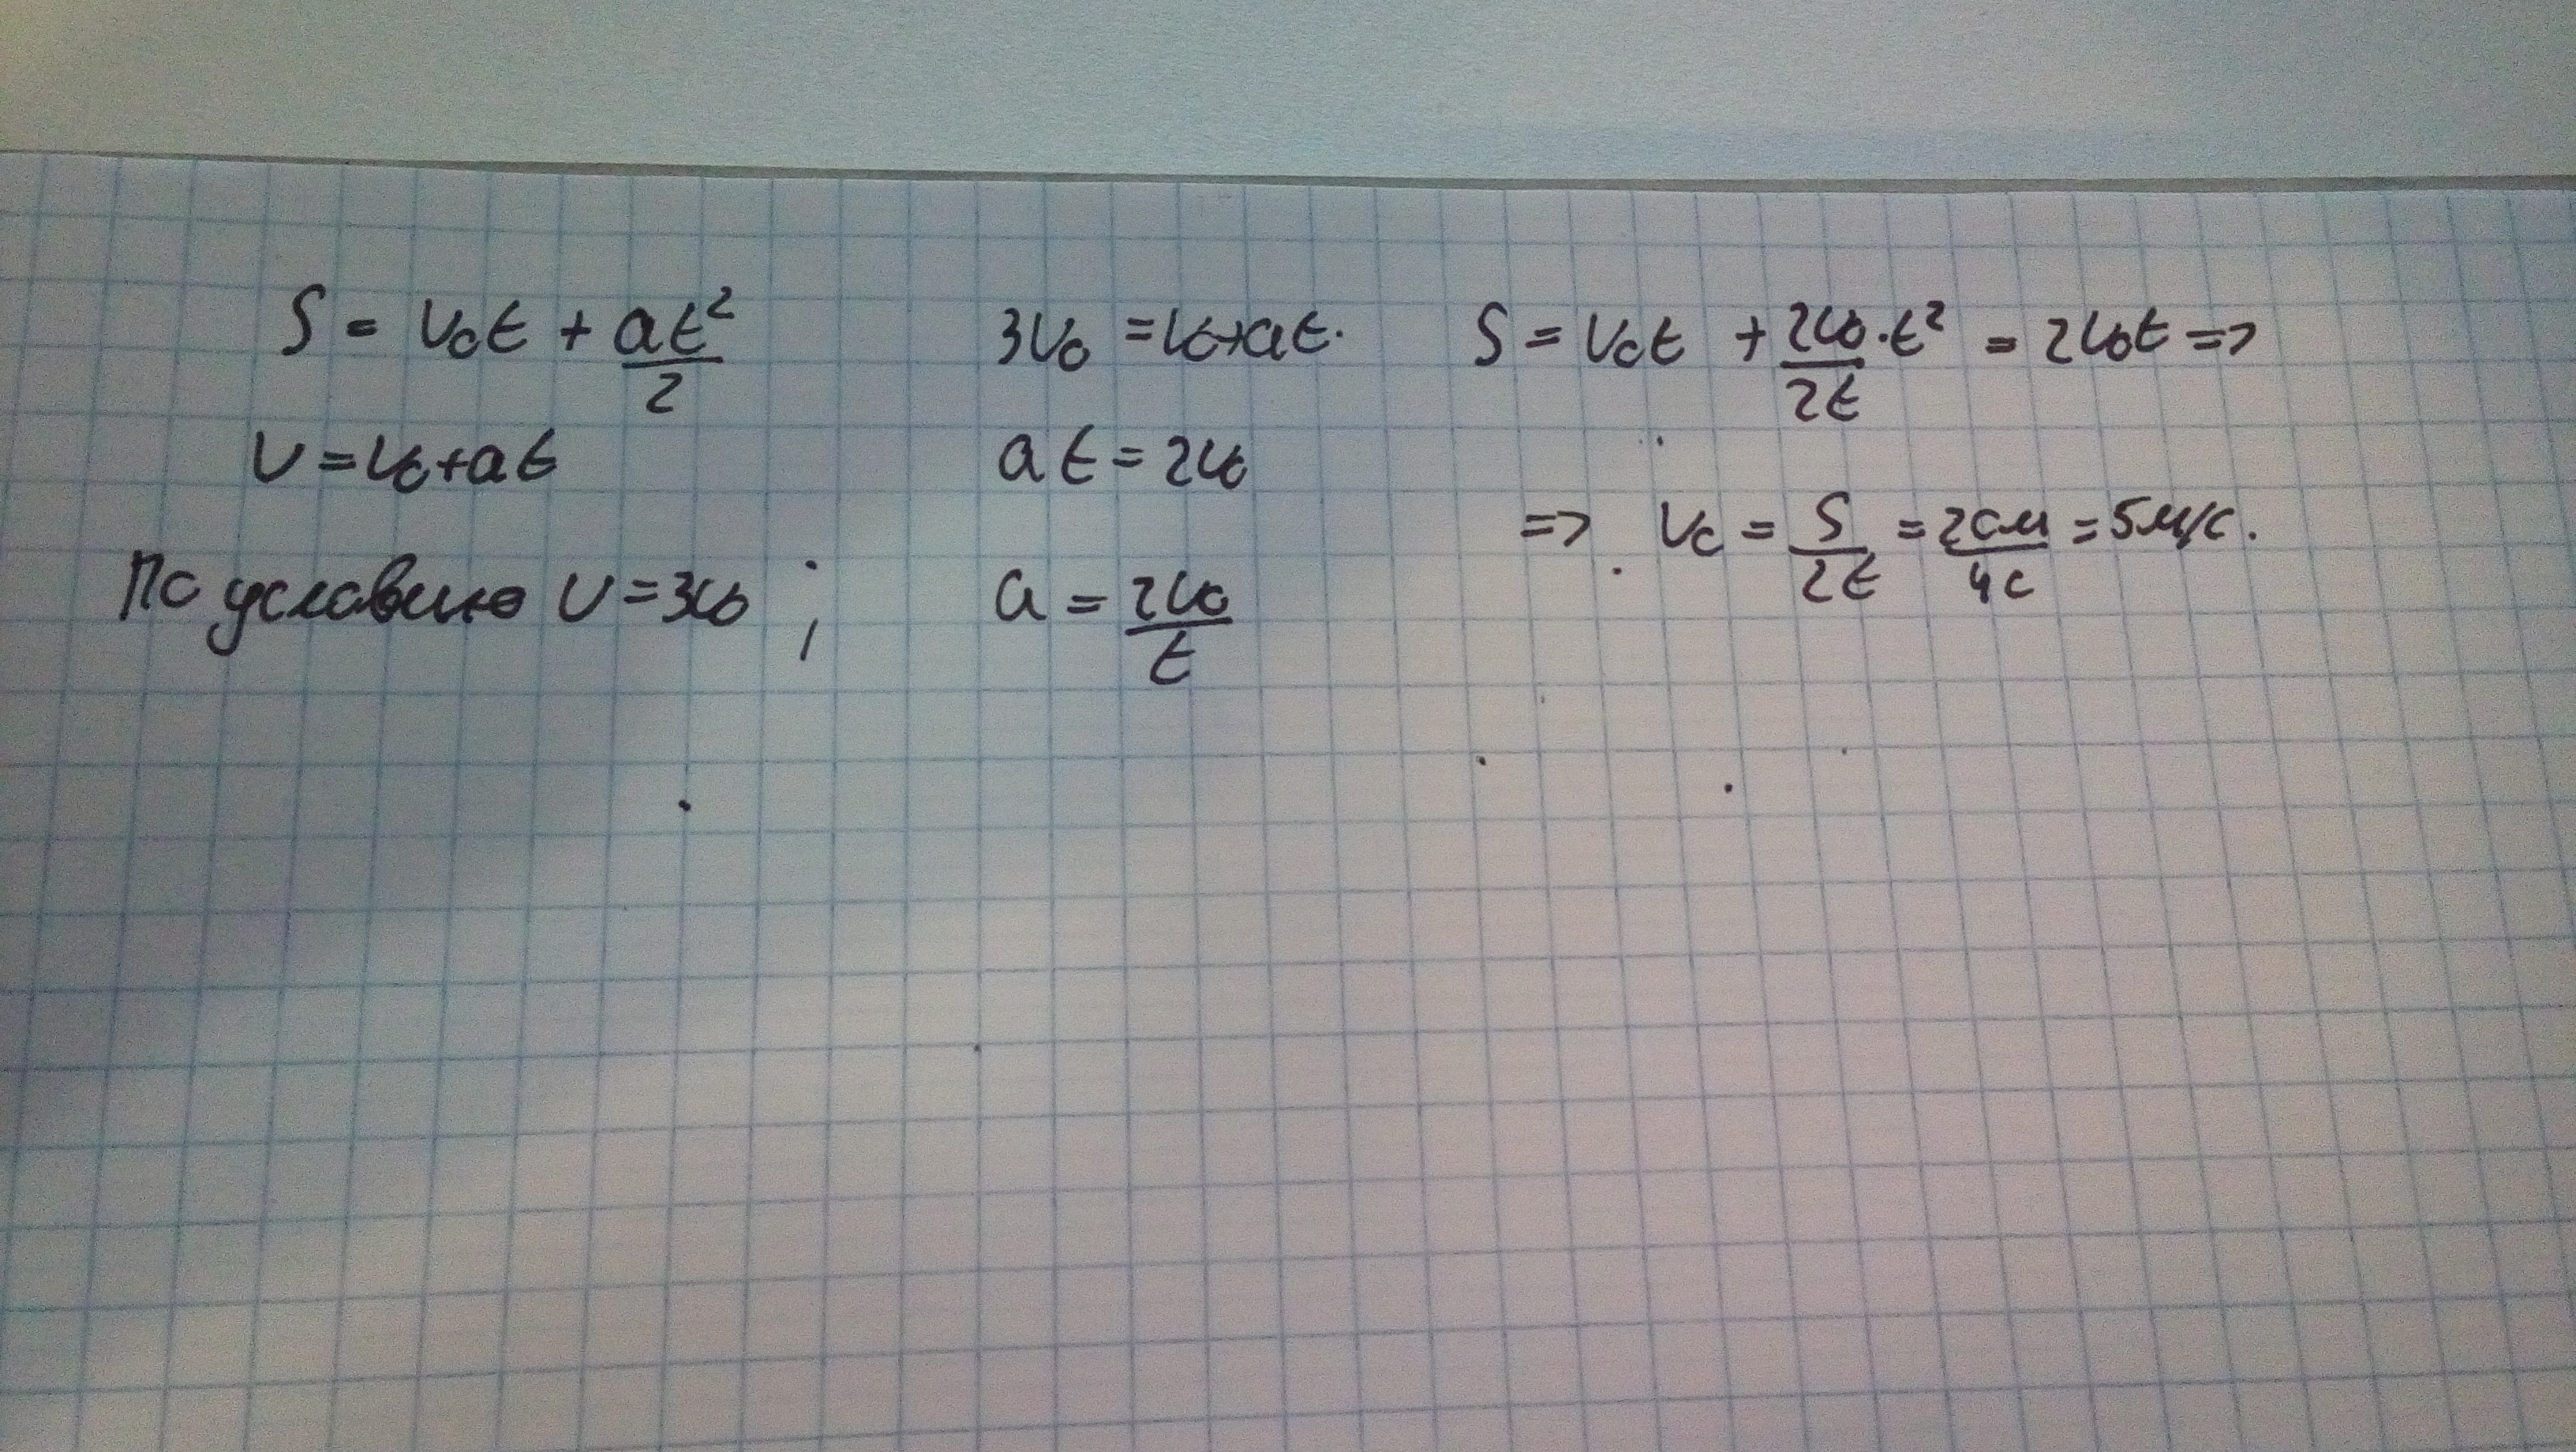 S = v₀t + at²/2
v = v₀ + at
По условию v = 3v₀ ;
3v₀ = v₀ + at.
at = 2v₀
a = 2v₀/t
S = v₀t + 2v₀/2t · t² = 2v₀t =>
=> v₀ = S/2t = 20м/4с = 5м/с.